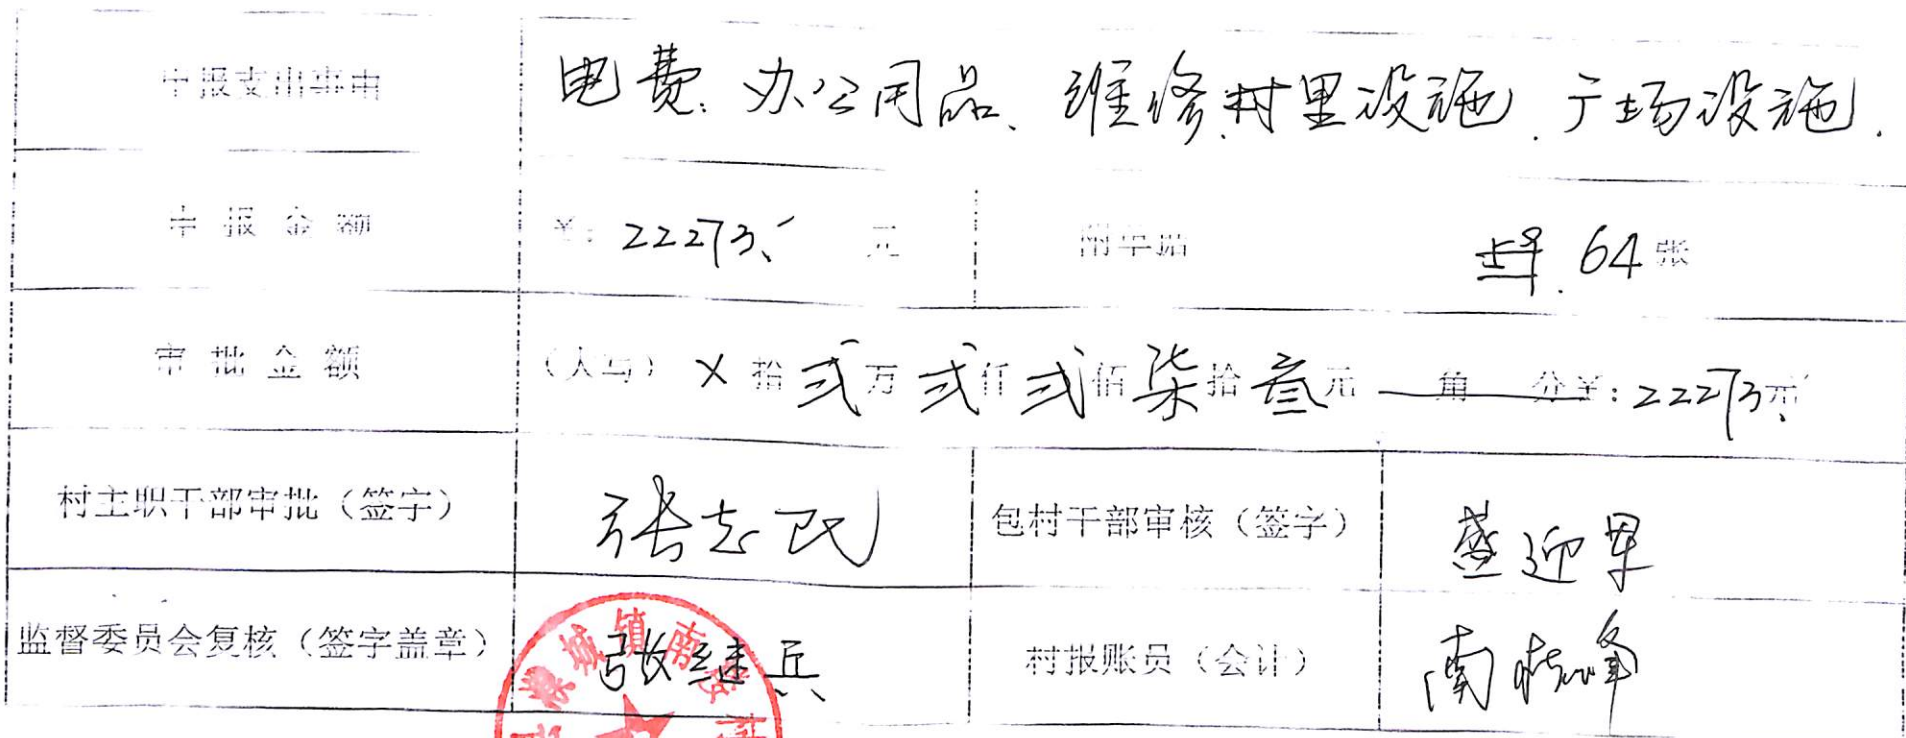 申报支出事由 电费、办公用品、维修村里设施、广场设施.
申报金额 ¥: 22273. 元 附单据 64张
审批金额 (大写) X拾弍万弍仟弍佰柒拾叁元 角 分¥:22273元
村主职干部审批（签字） 张志民 包村干部审核（签字） 迎军
监督委员会复核（签字盖章） 张继兵 村报账员（会计） 南 峰
城镇南 村